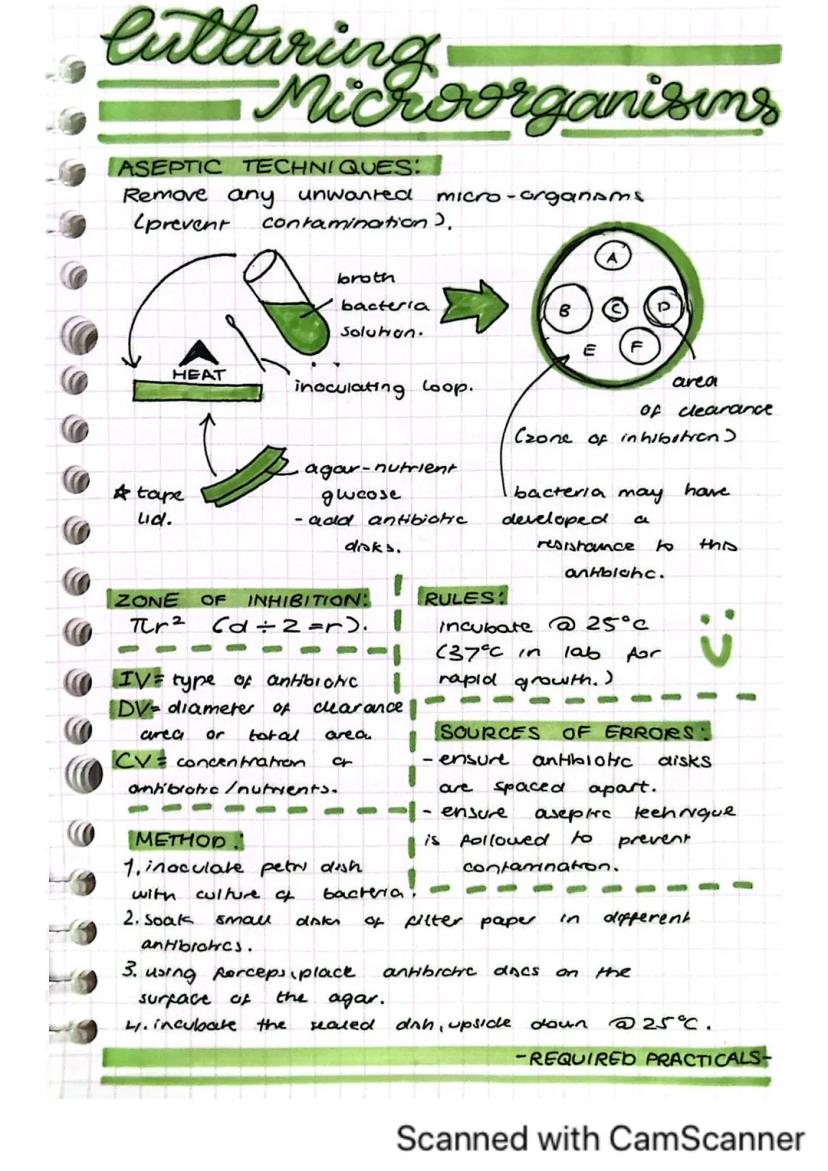 Culturing
Microorganisms
ASEPTIC TECHNIQUES:
Remove any unwanted micro-organisms
(prevent contamination).
broth
bacteria
solution.
HEAT
inoculating loop.
A
B
C
D
E
F
area
of clearance
(zone of inhibition)
☆ tape
lid.
agar-nutrient
glucose
- add antibiotic
disks.
bacteria may have
developed a
resistance to this
antibiotic.
ZONE OF INHIBITION:
πr² (d ÷ 2 = r).
IV = type of antibiotic
DV = diameter of clearance
area or total area.
CV = concentration of
antibiotic/nutrients.
RULES:
incubate @ 25°C
(37°C in lab for
rapid growth.)
SOURCES OF ERRORS:
- ensure antibiotic disks
are spaced apart.
- ensure aseptic technique
is followed to prevent
contamination.
METHOD:
1. inoculate petri dish
with culture of bacteria.
2. soak small disks of filter paper in different
antibiotics.
3. using forceps, place antibiotic discs on the
surface of the agar.
4. incubate the sealed dish, upside down @ 25°C.
-REQUIRED PRACTICALS-
Scanned with CamScanner